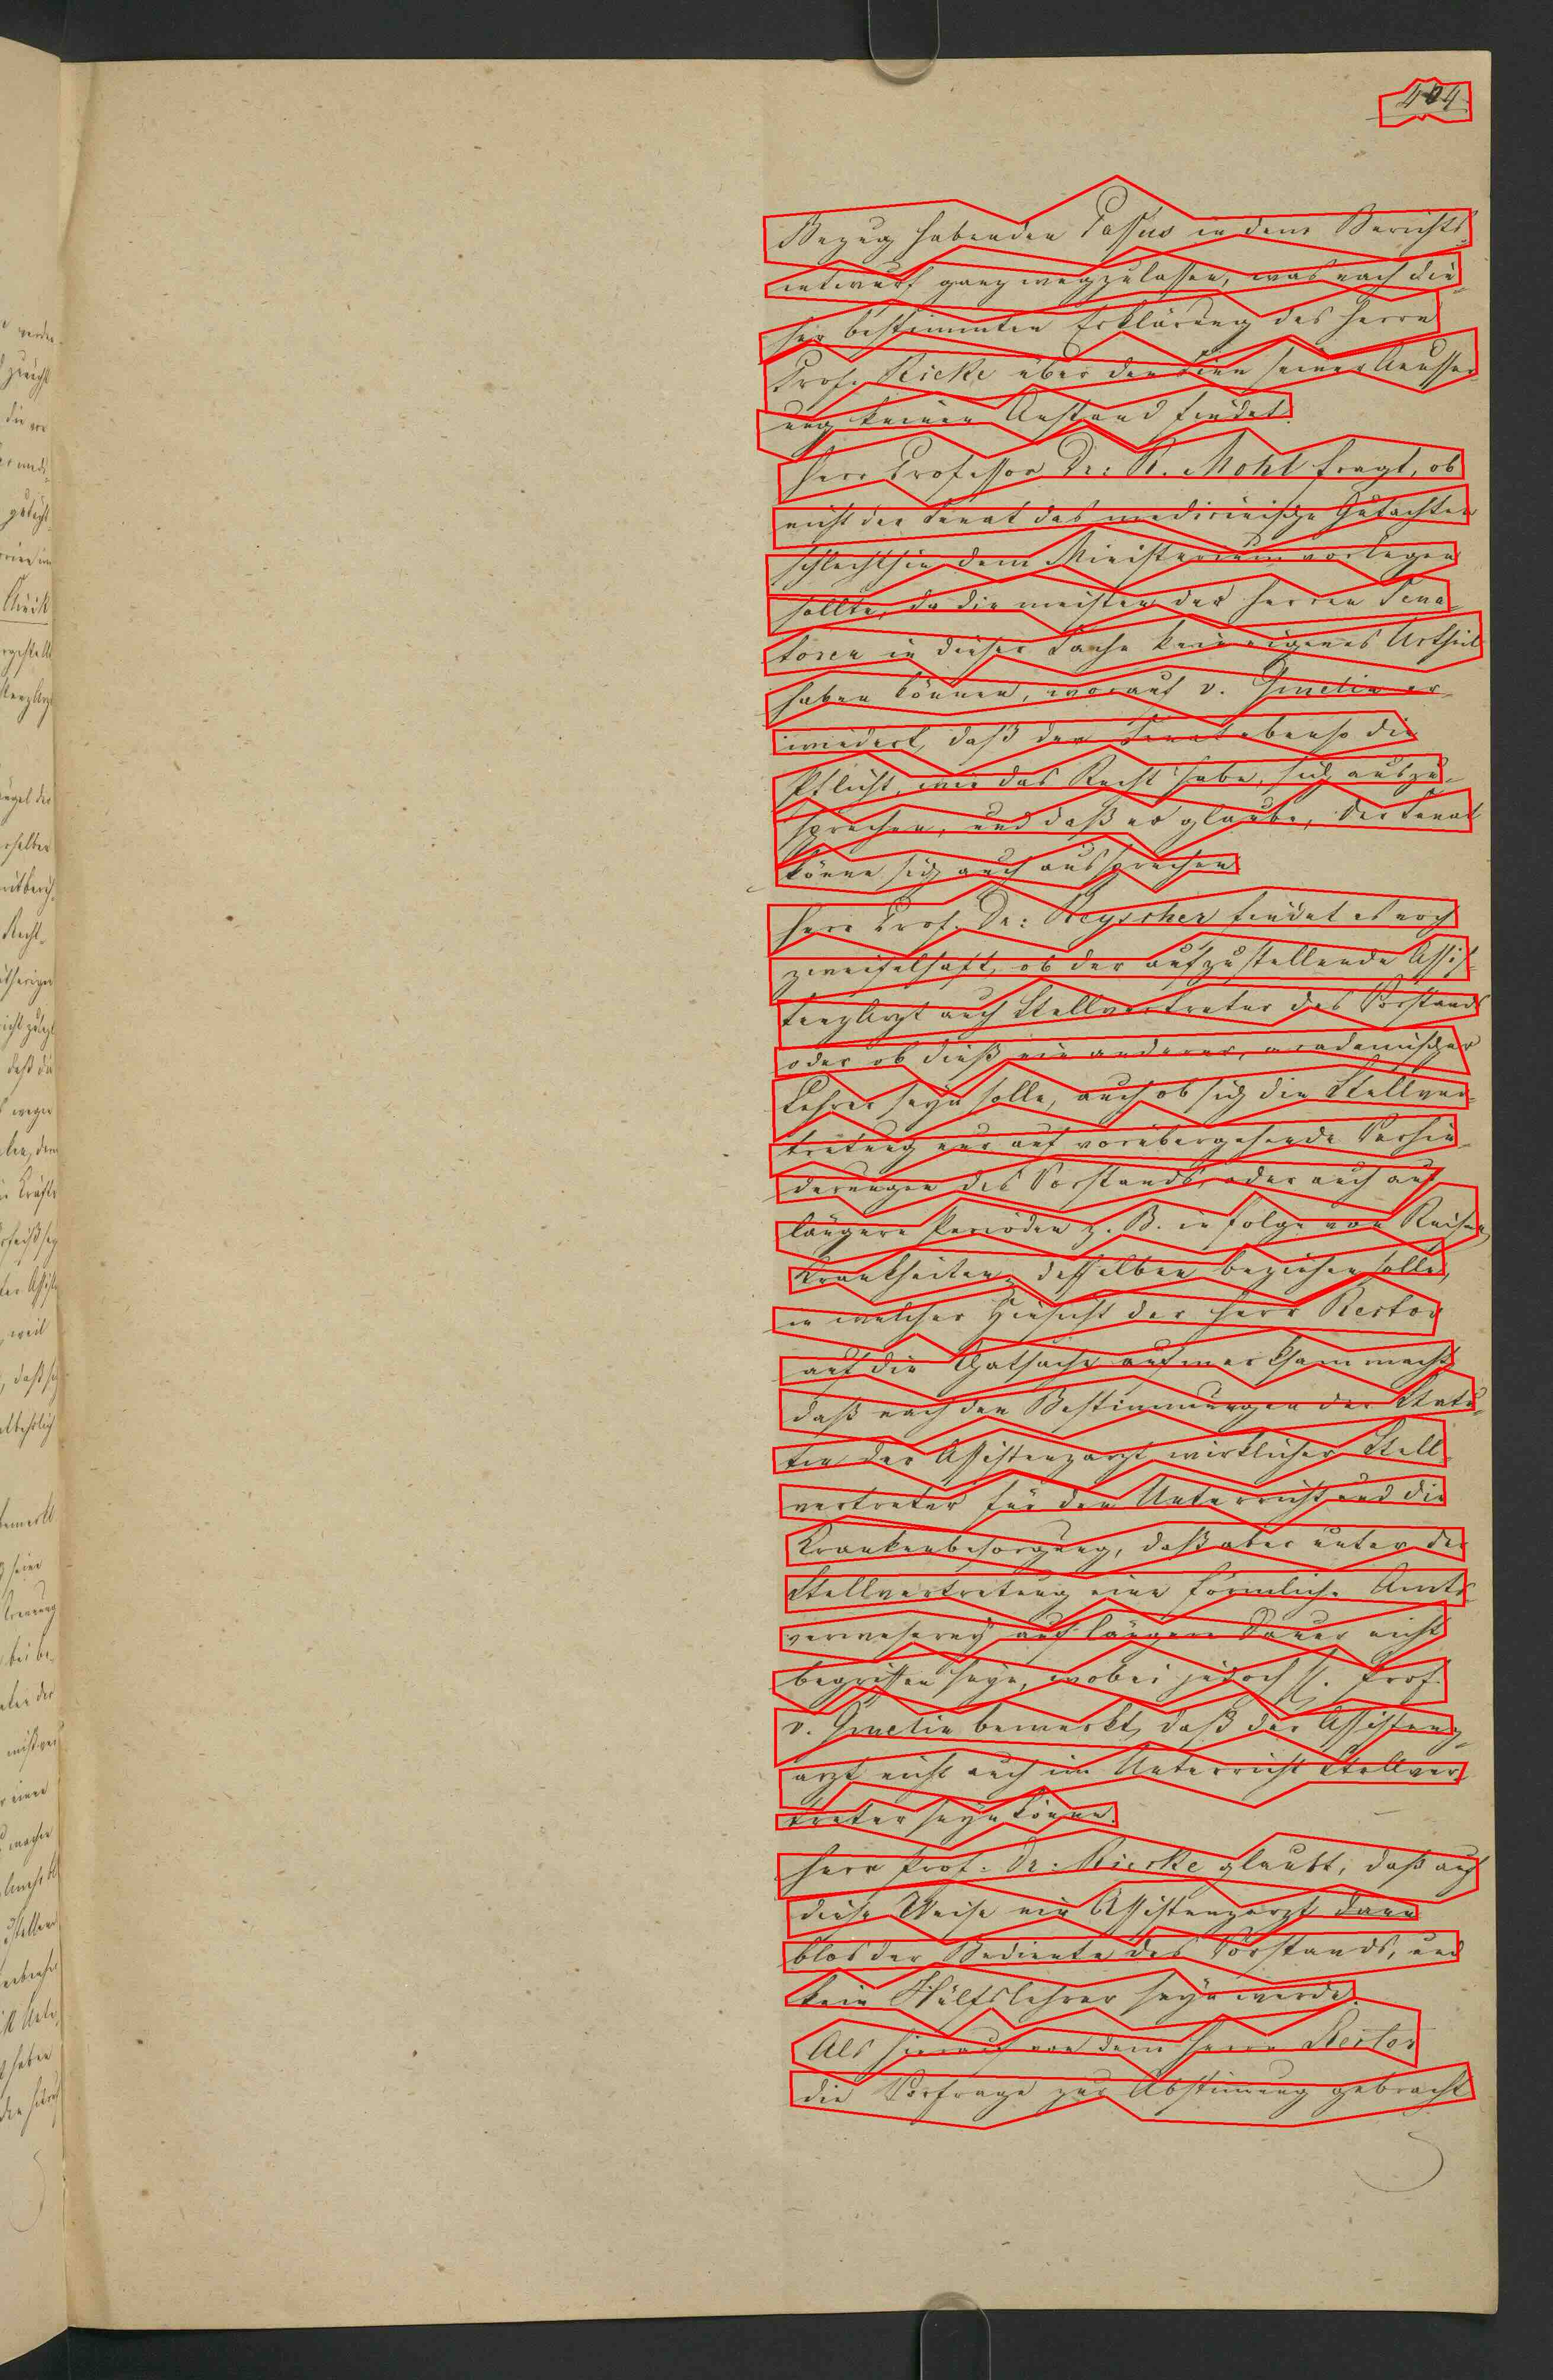 404
Bezug habenden Passus in dem Berichts-
entwurf ganz wegzulassen, was nach die-
ser bestimmten Erklärung des Herrn
Prof. Ricke über den Sinn seiner Aeusser-
ung keinen Anstand findet.
Herr Professor Dr: R. Mohl fragt, ob
nicht der Senat das medicinische Gutachten
schlechthin dem Ministerium vorlegen
sollte, da die meisten der Herren Sena-
toren in dieser Sache kein eigenes Urtheil
haben können, worauf v. Gmelin er-
wiedert, daß der Senat ebenso die
Pflicht, wie das Recht habe, sich auszu-
sprechen, und daß er glaube, der Senat
könne sich auch aussprechen.
Herr Prof. Dr: Reyscher findet es noch
zweifelhaft, ob der aufzustellende Assis-
tenzArzt auch Stellvertreter des Vorstands
oder ob dieß ein anderer, academischer
Lehrer seyn solle, auch ob sich die Stellver-
tretung nur auf vorübergehende Verhin-
derungen des Vorstands, oder auch auf
längere Perioden z. B. in folge von Reisen,
Krankheiten desselben beziehen solle,
in welcher Hinsicht der Herr Rector
auf die Thatsache aufmerksam macht
daß nach den Bestimmungen der Statu-
ten der Assistenzarzt wirklicher Stell-
vertreter für den Unterricht und die
Krankenbesorgung, daß aber unter der
Stellvertretung eine förmliche Amts-
verweserey auf längere Dauer nicht
begriffen seye, wobei jedoch H. Prof.
v. Gmelin bemerkt, daß der Assistenz-
arzt nicht auch im Unterricht Stellver-
treter seyn könne.
Herr Prof. Dr. Riecke glaubt, daß auf
diese Weise ein Assistenzarzt dann
blos der Bediente des Vorstands, und
kein Hülfslehrer seyn werde.
Als hierauf von dem Herrn Rector
die Vorfrage zur Abstimung gebracht